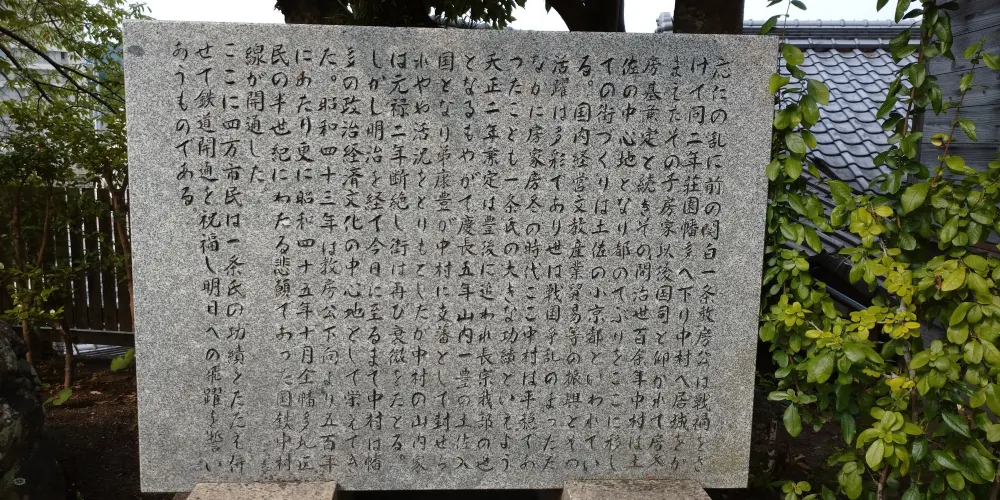 応仁の乱に前の関白一条教房公は戦禍をさ
けて同二年荘園幡多へ下り中村へ居城をか
まえたその子房家以後国司と仰がれて房冬
房基兼定と続きその間治世百余年中村は土
佐の中心地となり都のてぶりをここに移し
ての街づくりは土佐の小京都といわれてい
る。国内経営文教産業貿易等の振興とその
活躍は多彩であり世は戦国争乱のまっただ
なかに房家房冬の時代ここ中村は平穏であ
ったことも一条氏の大きな功績といえよう
天正二年兼定は豊後に追われ長宗我部のせ
となるもやがて慶長五年山内一豊の土佐入
国となり弟康豊が中村に支藩として封ぜら
れやや活況をとりもどしたが中村の山内家
は元禄二年断絶し街は再び衰微をたどる。
しかし明治を経て今日に至るまで中村は幡
多の政治経済文化の中心地として栄えてき
た。昭和四十三年は教房公下向より五百年
にあたり更に昭和四十五年十月全幡多県区
民の半世紀にわたる悲願であった国鉄中村
線が開通した
ここに四万市民は一条氏の功績をたたえ併
せて鉄道開通を祝福し明日への飛躍を誓い
あうものである。